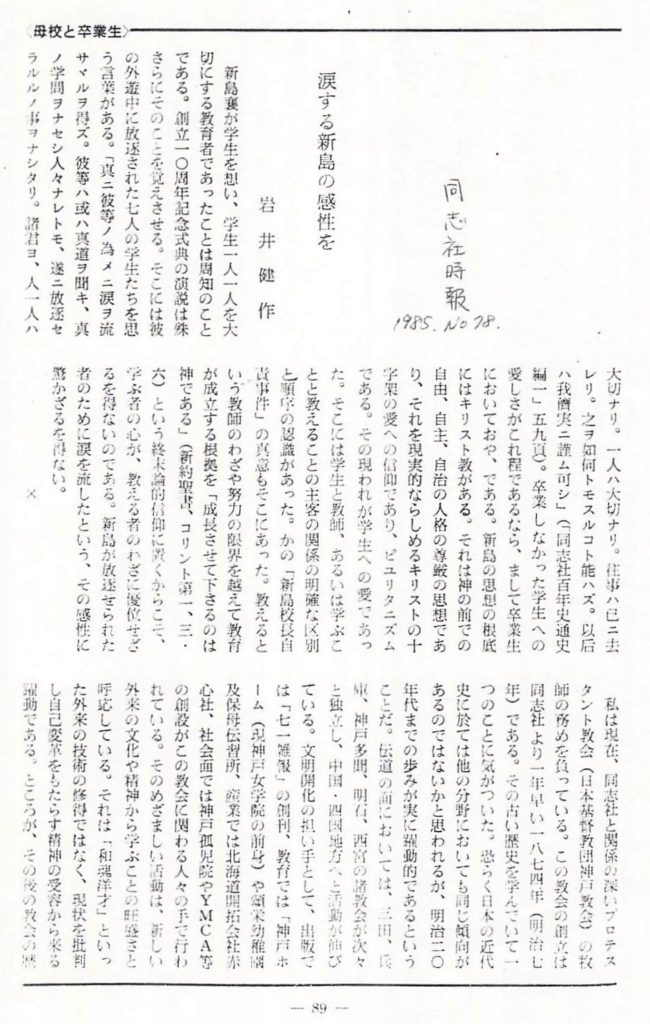 〈母校と卒業生〉
同志社時報
1985. No 78.
涙する新島の感性を
岩井健作
新島襄が学生を想い、学生一人一人を大
切にする教育者であったことは周知のこと
である。創立一〇周年記念式典の演説は殊
さらにそのことを覚えさせる。そこには彼
の外遊中に放逐された七人の学生たちを思
う言葉がある。「真ニ彼等ノ為メニ涙ヲ流
サヾルヲ得ズ。彼等ハ或ハ真道ヲ聞キ、真
ノ学問ヲナセシ人々ナレトモ、遂ニ放逐セ
ラルルノ事ヲナシタリ。諸君ヨ、人一人ハ
大切ナリ。一人ハ大切ナリ。往事ハ已ニ去
レリ。之ヲ如何トモスルコト能ハズ。以后
ハ我儕実ニ謹ム可シ」(「同志社百年史通史
編一」五九頁)。卒業しなかった学生への
愛しさがこれ程であるなら、まして卒業生
においておや、である。新島の思想の根底
にはキリスト教がある。それは神の前での
自由、自主、自治の人格の尊厳の思想であ
り、それを現実的ならしめるキリストの十
字架の愛への信仰であり、ピユリタニズム
である。その現われが学生への愛であっ
た。そこには学生と教師、あるいは学ぶこ
とと教えることの主客の関係の明確な区別
と順序の認識があった。かの「新島校長自
責事件」の真意もそこにあった。教えると
いう教師のわざや努力の限界を越えて教育
が成立する根拠を「成長させて下さるのは
神である」(新約聖書、コリント第一、三・
六)という終末論的信仰に置くからこそ、
学ぶ者の心が、教える者のわざに優位せざ
るを得ないのである。新島が放逐せられた
者のために涙を流したという、その感性に
驚かざるを得ない。
×
私は現在、同志社と関係の深いプロテス
タント教会(日本基督教団神戸教会)の牧
師の務めを負っている。この教会の創立は
同志社より一年早い一八七四年(明治七
年)である。その古い歴史を学んでいて一
つのことに気がついた。恐らく日本の近代
史に於ては他の分野においても同じ傾向が
あるのではないかと思われるが、明治二〇
年代までの歩みが実に躍動的であるという
ことだ。伝道の面においては、三田、兵
庫、神戸多聞、明石、西宮の諸教会が次々
と独立し、中国・四国地方へと活動が伸び
ている。文明開化の担い手として、出版で
は「七一雑報」の創刊、教育では「神戸ホ
ーム(現神戸女学院の前身)や頌栄幼稚園
及保母伝習所、産業では北海道開拓会社赤
心社、社会面では神戸孤児院やYMCA等
の創設がこの教会に関わる人々の手で行わ
れている。そのめざましい活動は、新しい
外来の文化や精神から学ぶことの旺盛さと
呼応している。それは「和魂洋才」といっ
た外来の技術の修得ではなく、現状を批判
し自己変革をもたらす精神の受容から来る
躍動である。ところが、その後の教会の歴
— 89 —